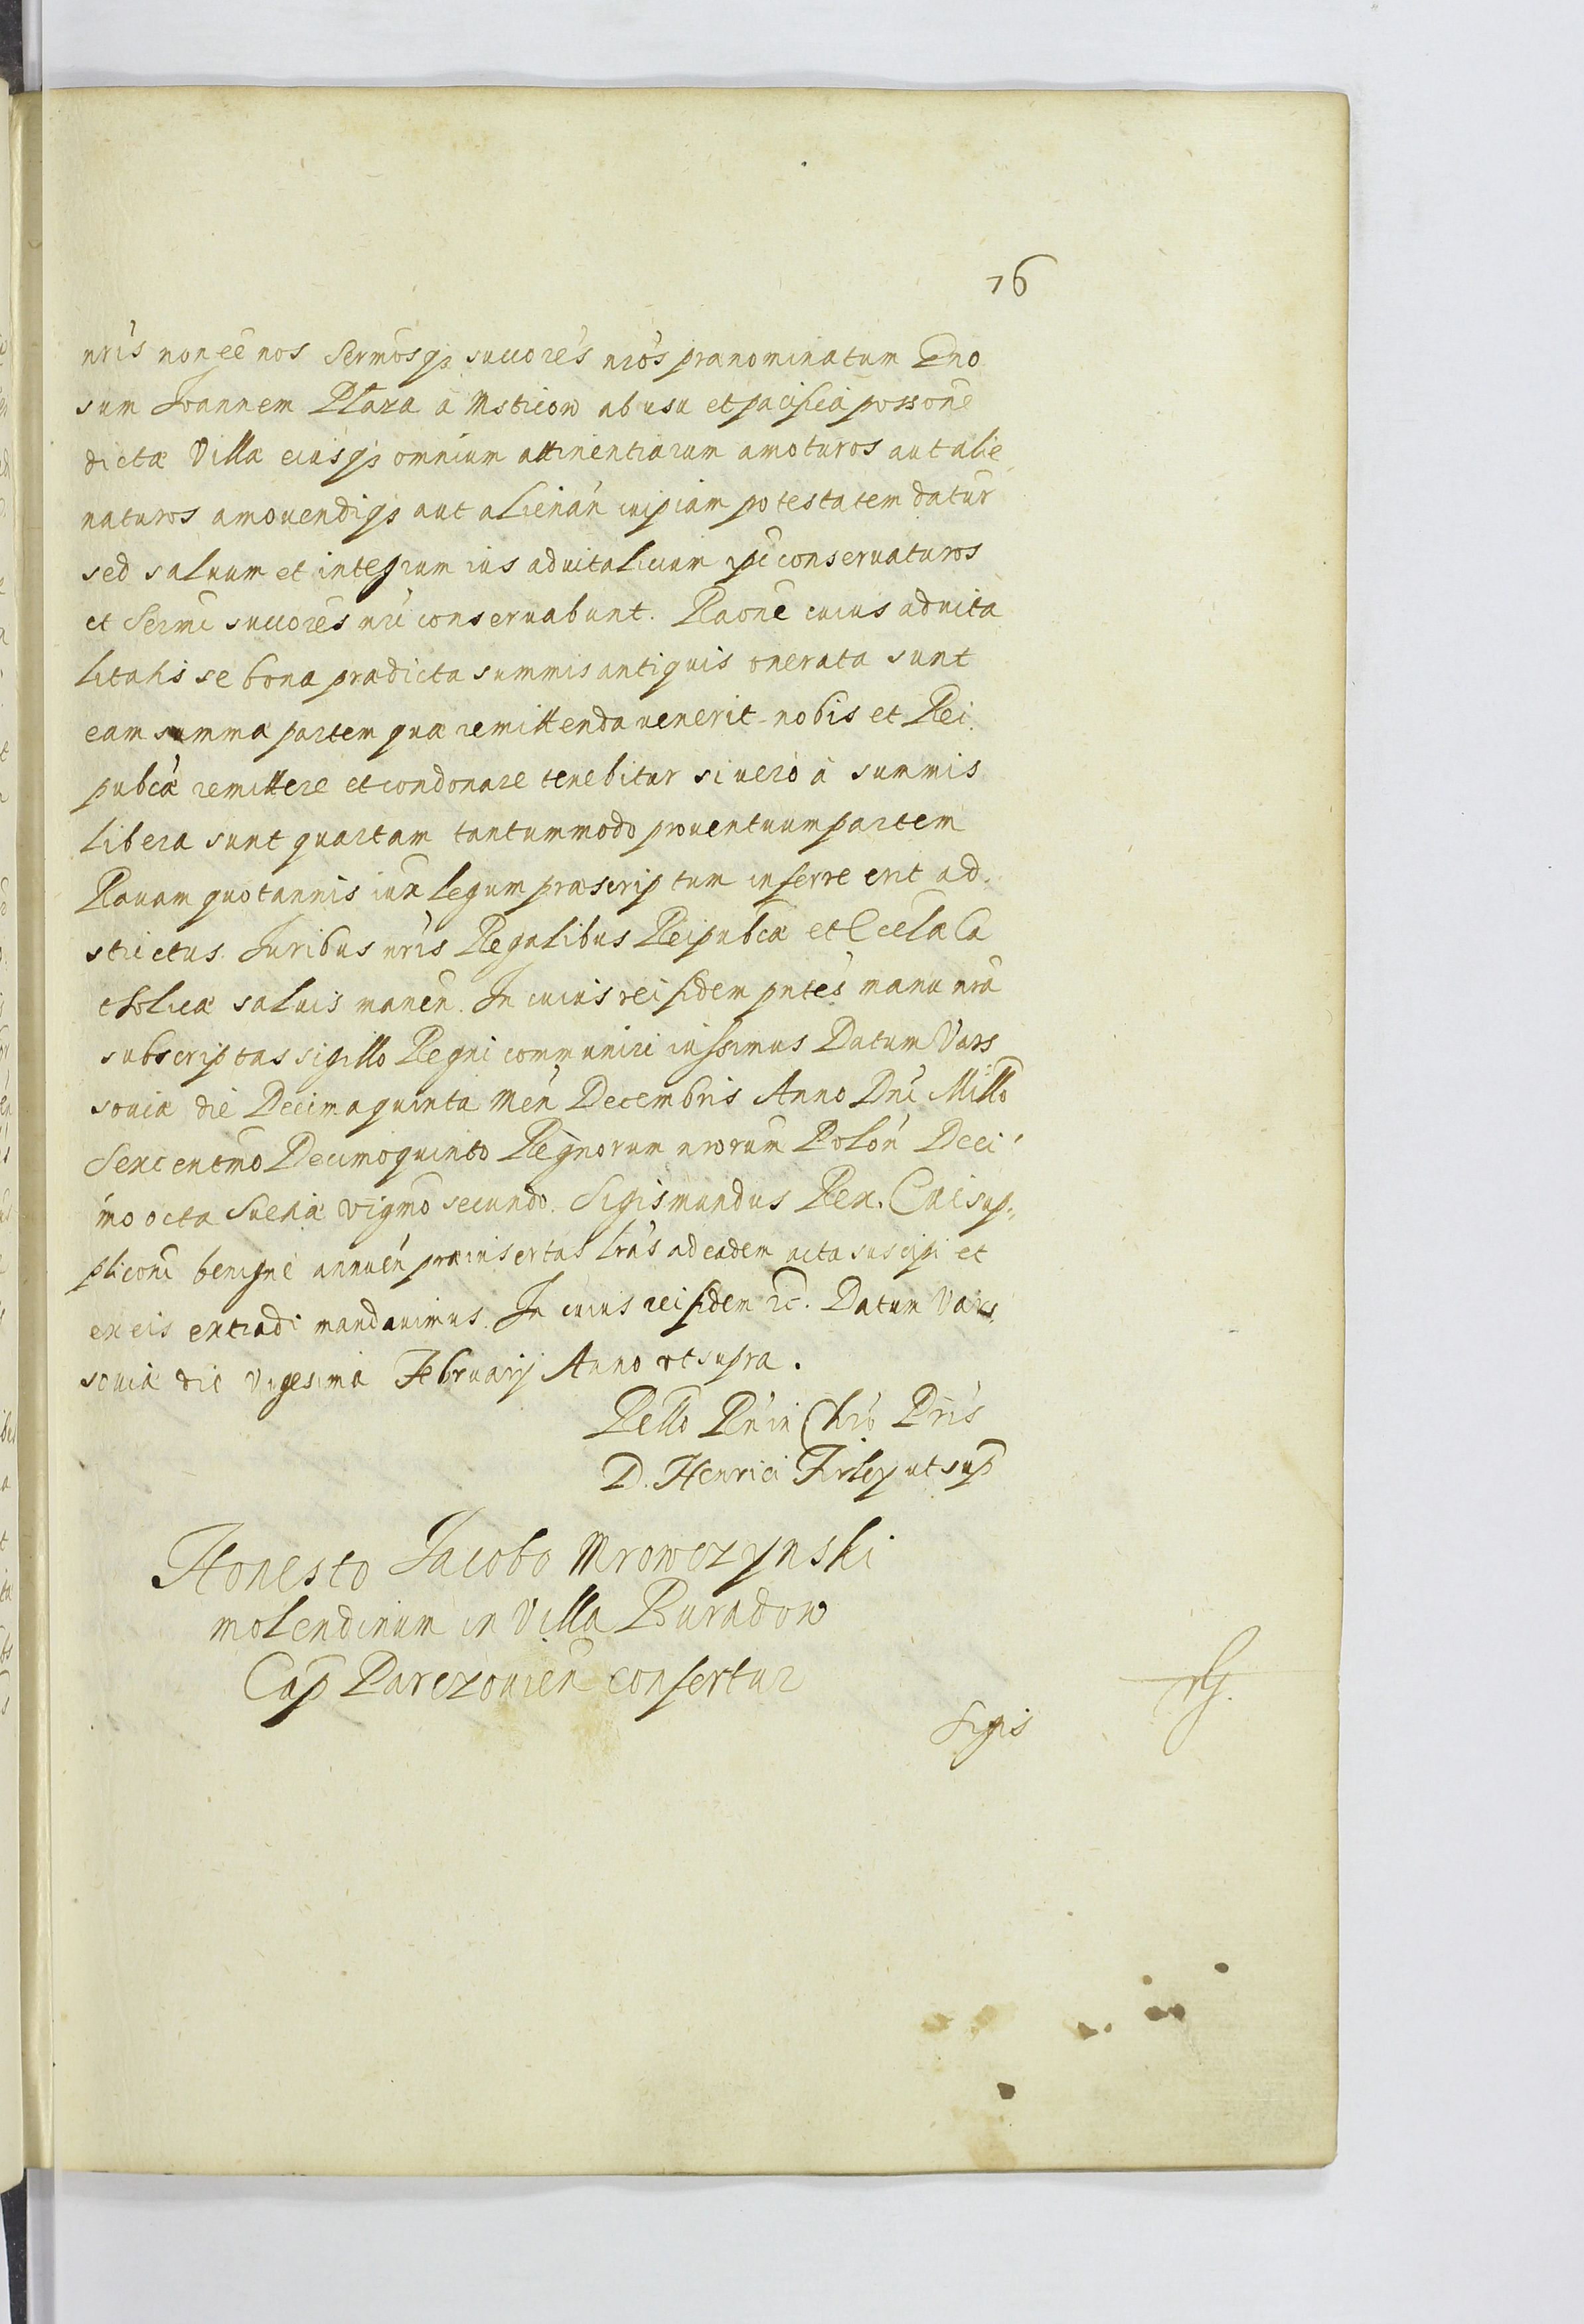 76
nris non ee nos Sermosq3 succores nros pranominatum Gno
sum Joannem Plaza a Msticow ab usu et pacifica possone
dictæ Villæ eiusq3 omnium attinentiarum amoturos aut alie
naturos amouendiq3 aut alienan cuipiam potestatem datur
sed saluum et integrum ius aduitalicium ipi conseruaturos
et Sermi succores nri conseruabunt. Raone cuius aduita
litatis se bona prædicta summis antiquis onerata sunt
eam summæ partem quæ remittenda uenerit nobis et Rei
pubcæ remittere et condonare tenebitur si uero à summis
libera sunt quartam tantummodo prouentuum partem
Rauam quotannis iux legum præscriptum inferre erit ad
strictus. Juribus nris Regalibus Reipubcæ et Ecclæ Ca
tholicæ saluis manen. In cuius rei fidem pntes manu nra
subscriptas sigillo Regni communiri iussimus Datum Vars
souiæ die Decima quinta Men Decembris Anno Dni Millo
Sexcentmo Decimoquinto Regnorum nrorum Polon Deci
mo octa Sueciæ vigmo secundo. Sigismundus Rex. Cui sup
pliconi benigne annuen præinsertas lras ad eadem acta suscipi et
ex eis extradi mandauimus. In cuius rei fidem etc. Datum Vars
souiæ die Vigesima Februarij Anno ut supra.
Rello Rn in Chro Pris
D. Henrici Firley ut sup
Honesto Jacobo Mrowczynski
molendinum in Villa Buradow
Cap Parczouien confertur
Sigis